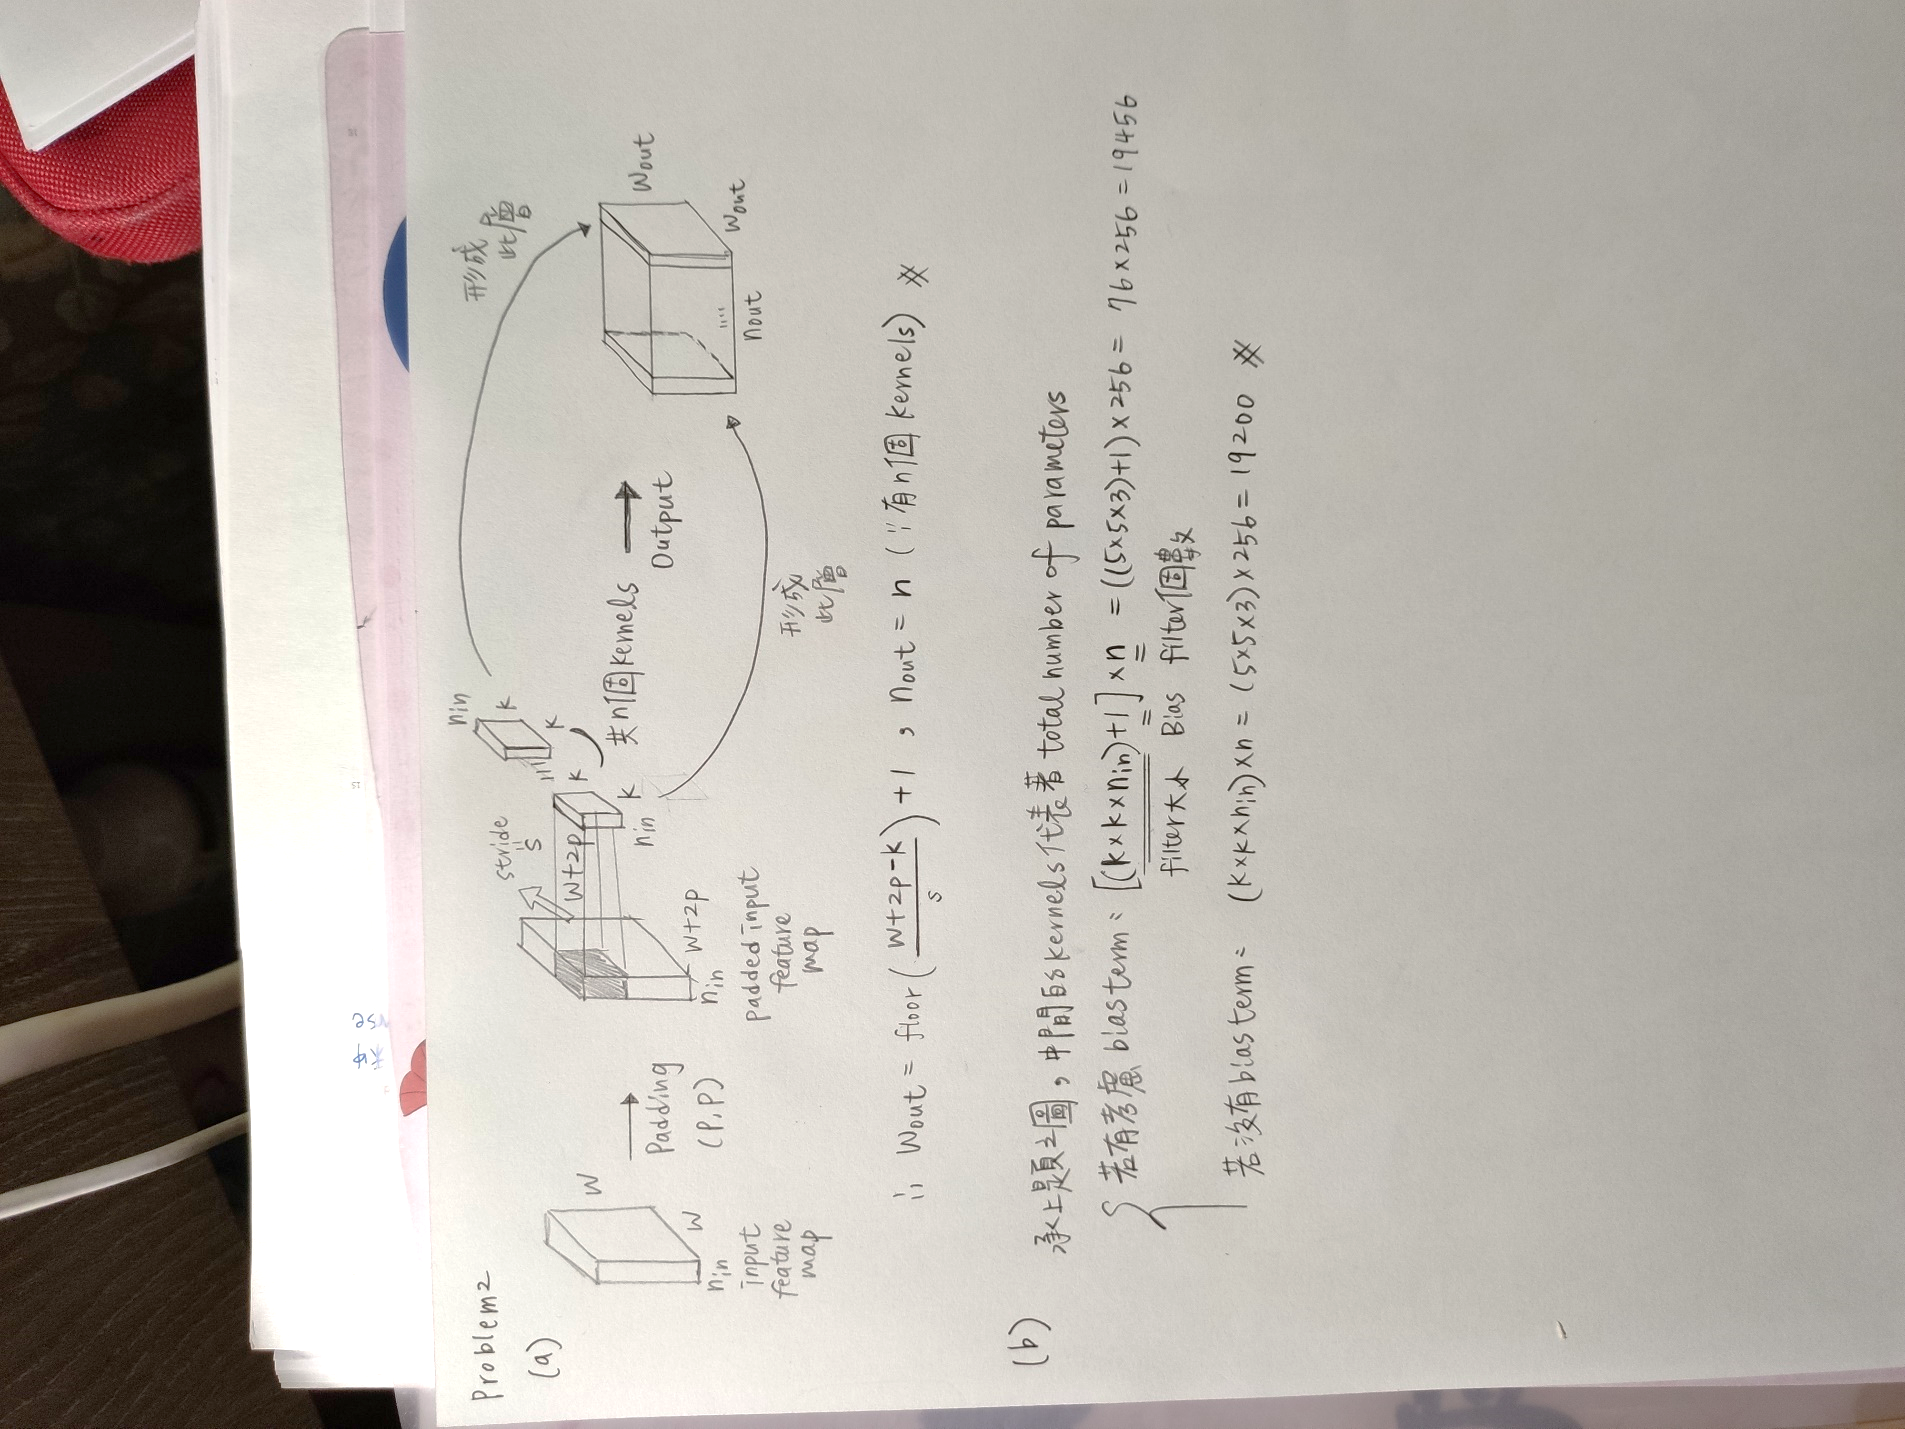 Problem2
(a)
W
W
nin
input
feature
map
Padding
(P,P)
stride
s
W+2p
W+2p
nin
padded input
feature
map
nin
k
k
k
k
nin
共n個kernels
Output
形成
此層
形成
此層
Wout
Wout
nout
∴ Wout = floor(\frac{W+2p-k}{s})+1 , nout = n (∵有n個kernels) ※
(b)
承上題之圖,中間的kernels代表著total number of parameters
若有考慮bias term: [(k×k×nin)+1]×n = ((5×5×3)+1)×256 = 76×256 = 19456
filter大小 Bias filter個數
若沒有bias term: (k×k×nin)×n = (5×5×3)×256 = 19200 ※